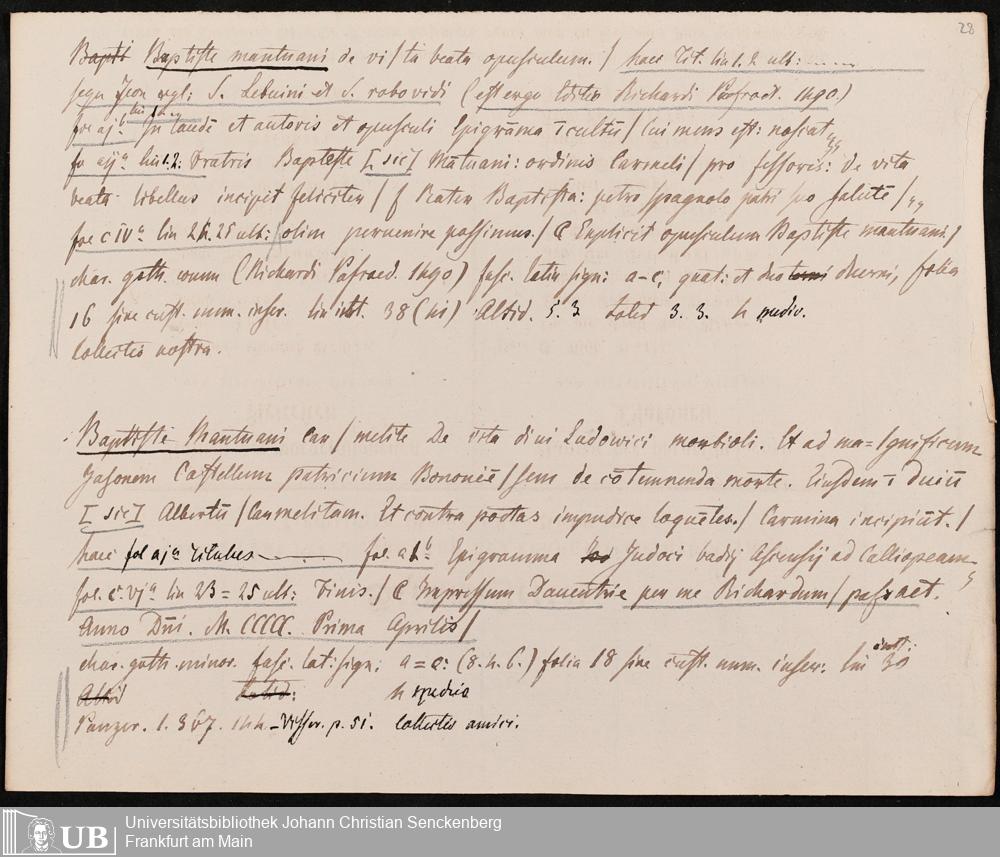 28
Bapti Baptiste mantuani de vi/ta beata opusculum./ haec Tit. lin 1. 2 ult:
sign Icon rgl: S. Lebuini et S. rabovidi (est ergo Editio Richardi Pafraet. 1490.)
fol aj b lin 1. In laudē et autoris et opusculi Epigrāma īcultū/ Cui mens est: noscat
fo aij a lin 1.2: Fratris Baptiste [sic] Mātuani: ordinis Carmeli/ pro fessoris: de vita
beata libellus incipit feliciter/ f Rater Baptista: petro spagnolo patri suo salutē/
fol c IV a lin 24.25 ult: olim peruenire possimus./ C Explicit opusculum Baptiste mantuani./
char. goth. rom (Richardi Pafraed. 1490) fasc. latin sign: a-c, quat: et duerni, folia
16 sine cust. num. inser. lin 38 (hi) Altid. 5. 3. Latid 3. 3. 4 medio.
Collectio nostra.
Baptiste Mantuani Car/melite De vita diui Ludovici morbioli. Et ad ma=/gnificum
Jasonem Castellum patricium Bononiē/sem de cōtemnenda morte. Eiusdem ī Duiū
[sic] Albertū/Carmelitam. Et contra poetas impudice loquētes./ Carmina incipiūt./
haec fol aj a Titulus fol. a 2 b Epigramma Judoci badij Ascensij ad Calliopeam
fol. c vj a lin 23=25 ult: Finis./ C Impressum Dauentrie per me Richardum/ pafraet.
Anno Dñi. M. CCCCC. Prima Aprilis/
char. goth. minor. fasc. lat: sign: a=c: (8. 4. 6.) folia 18 sine cust. num. inser: lin 30
Altid Latid: 4 medio
Panzer. 1. 367. 144. Visser. p. 51. Collectio amici.
UB Universitätsbibliothek Johann Christian Senckenberg
Frankfurt am Main